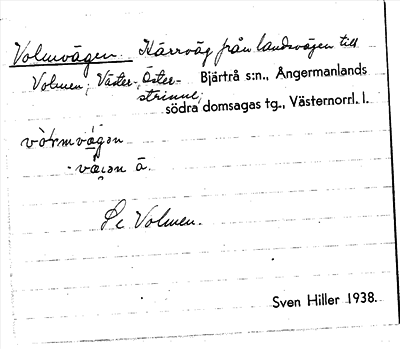 Volmvägen. Kärrväg från landsvägen till
Volmen, Väster-, Öster-
strinne;
Bjärtrå s:n., Ångermanlands
södra domsagas tg., Västernorrl. l.
Se Volmen.
Sven Hiller 1938.